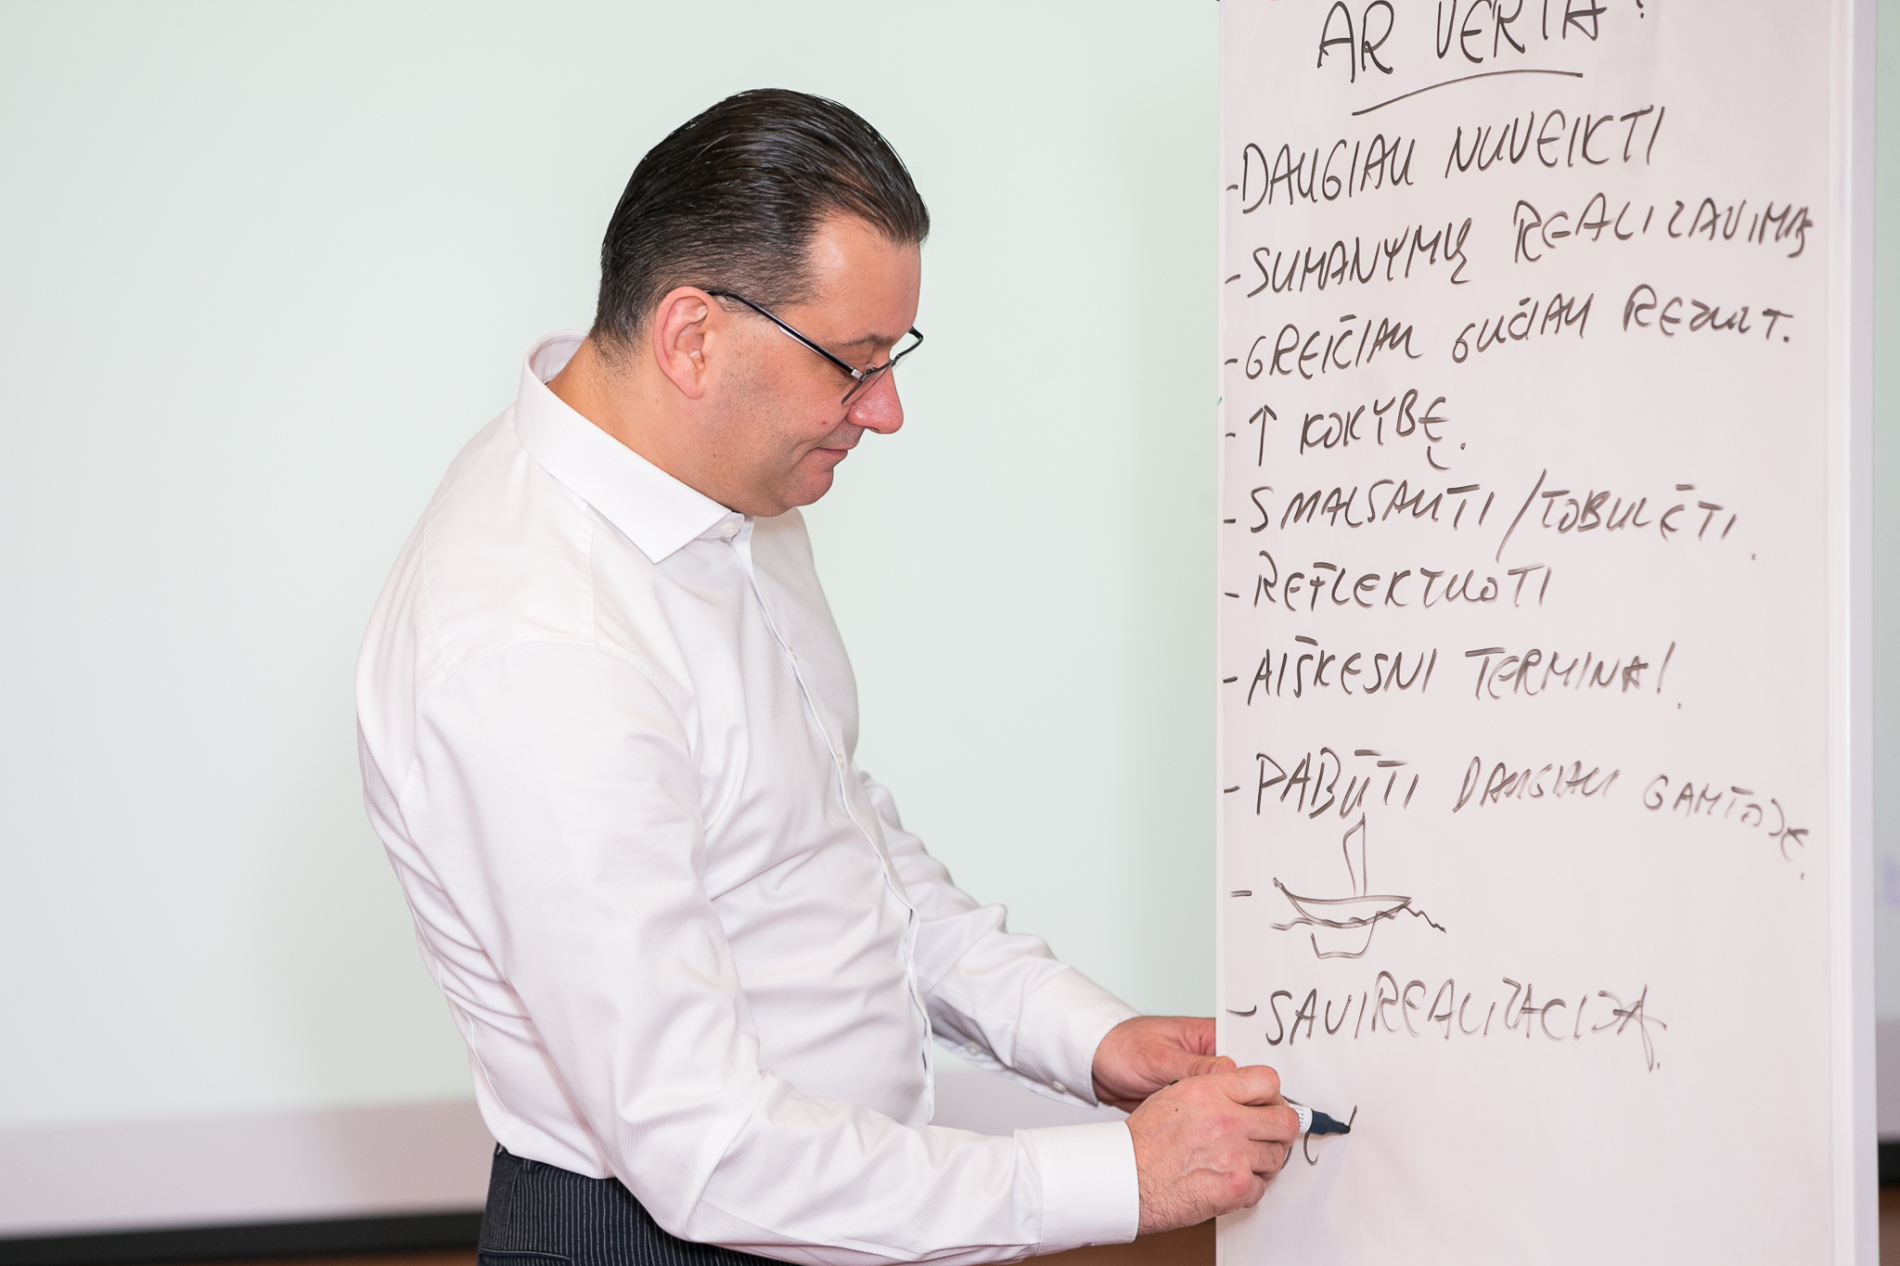 AR VERTA?
- DAUGIAU NUVEIKTI
- SUMANYMŲ REALIZAVIMAS
- GREIČIAU GUČIAU REZULT.
- ↑ KOKYBĘ.
- SMALSAUTI / TOBULĖTI.
- REFLEKTUOTI
- AIŠKESNI TERMINAI.
- PABŪTI DAUGIAU GAMTOJE.
-
- SAVIREALIZACIJĄ.